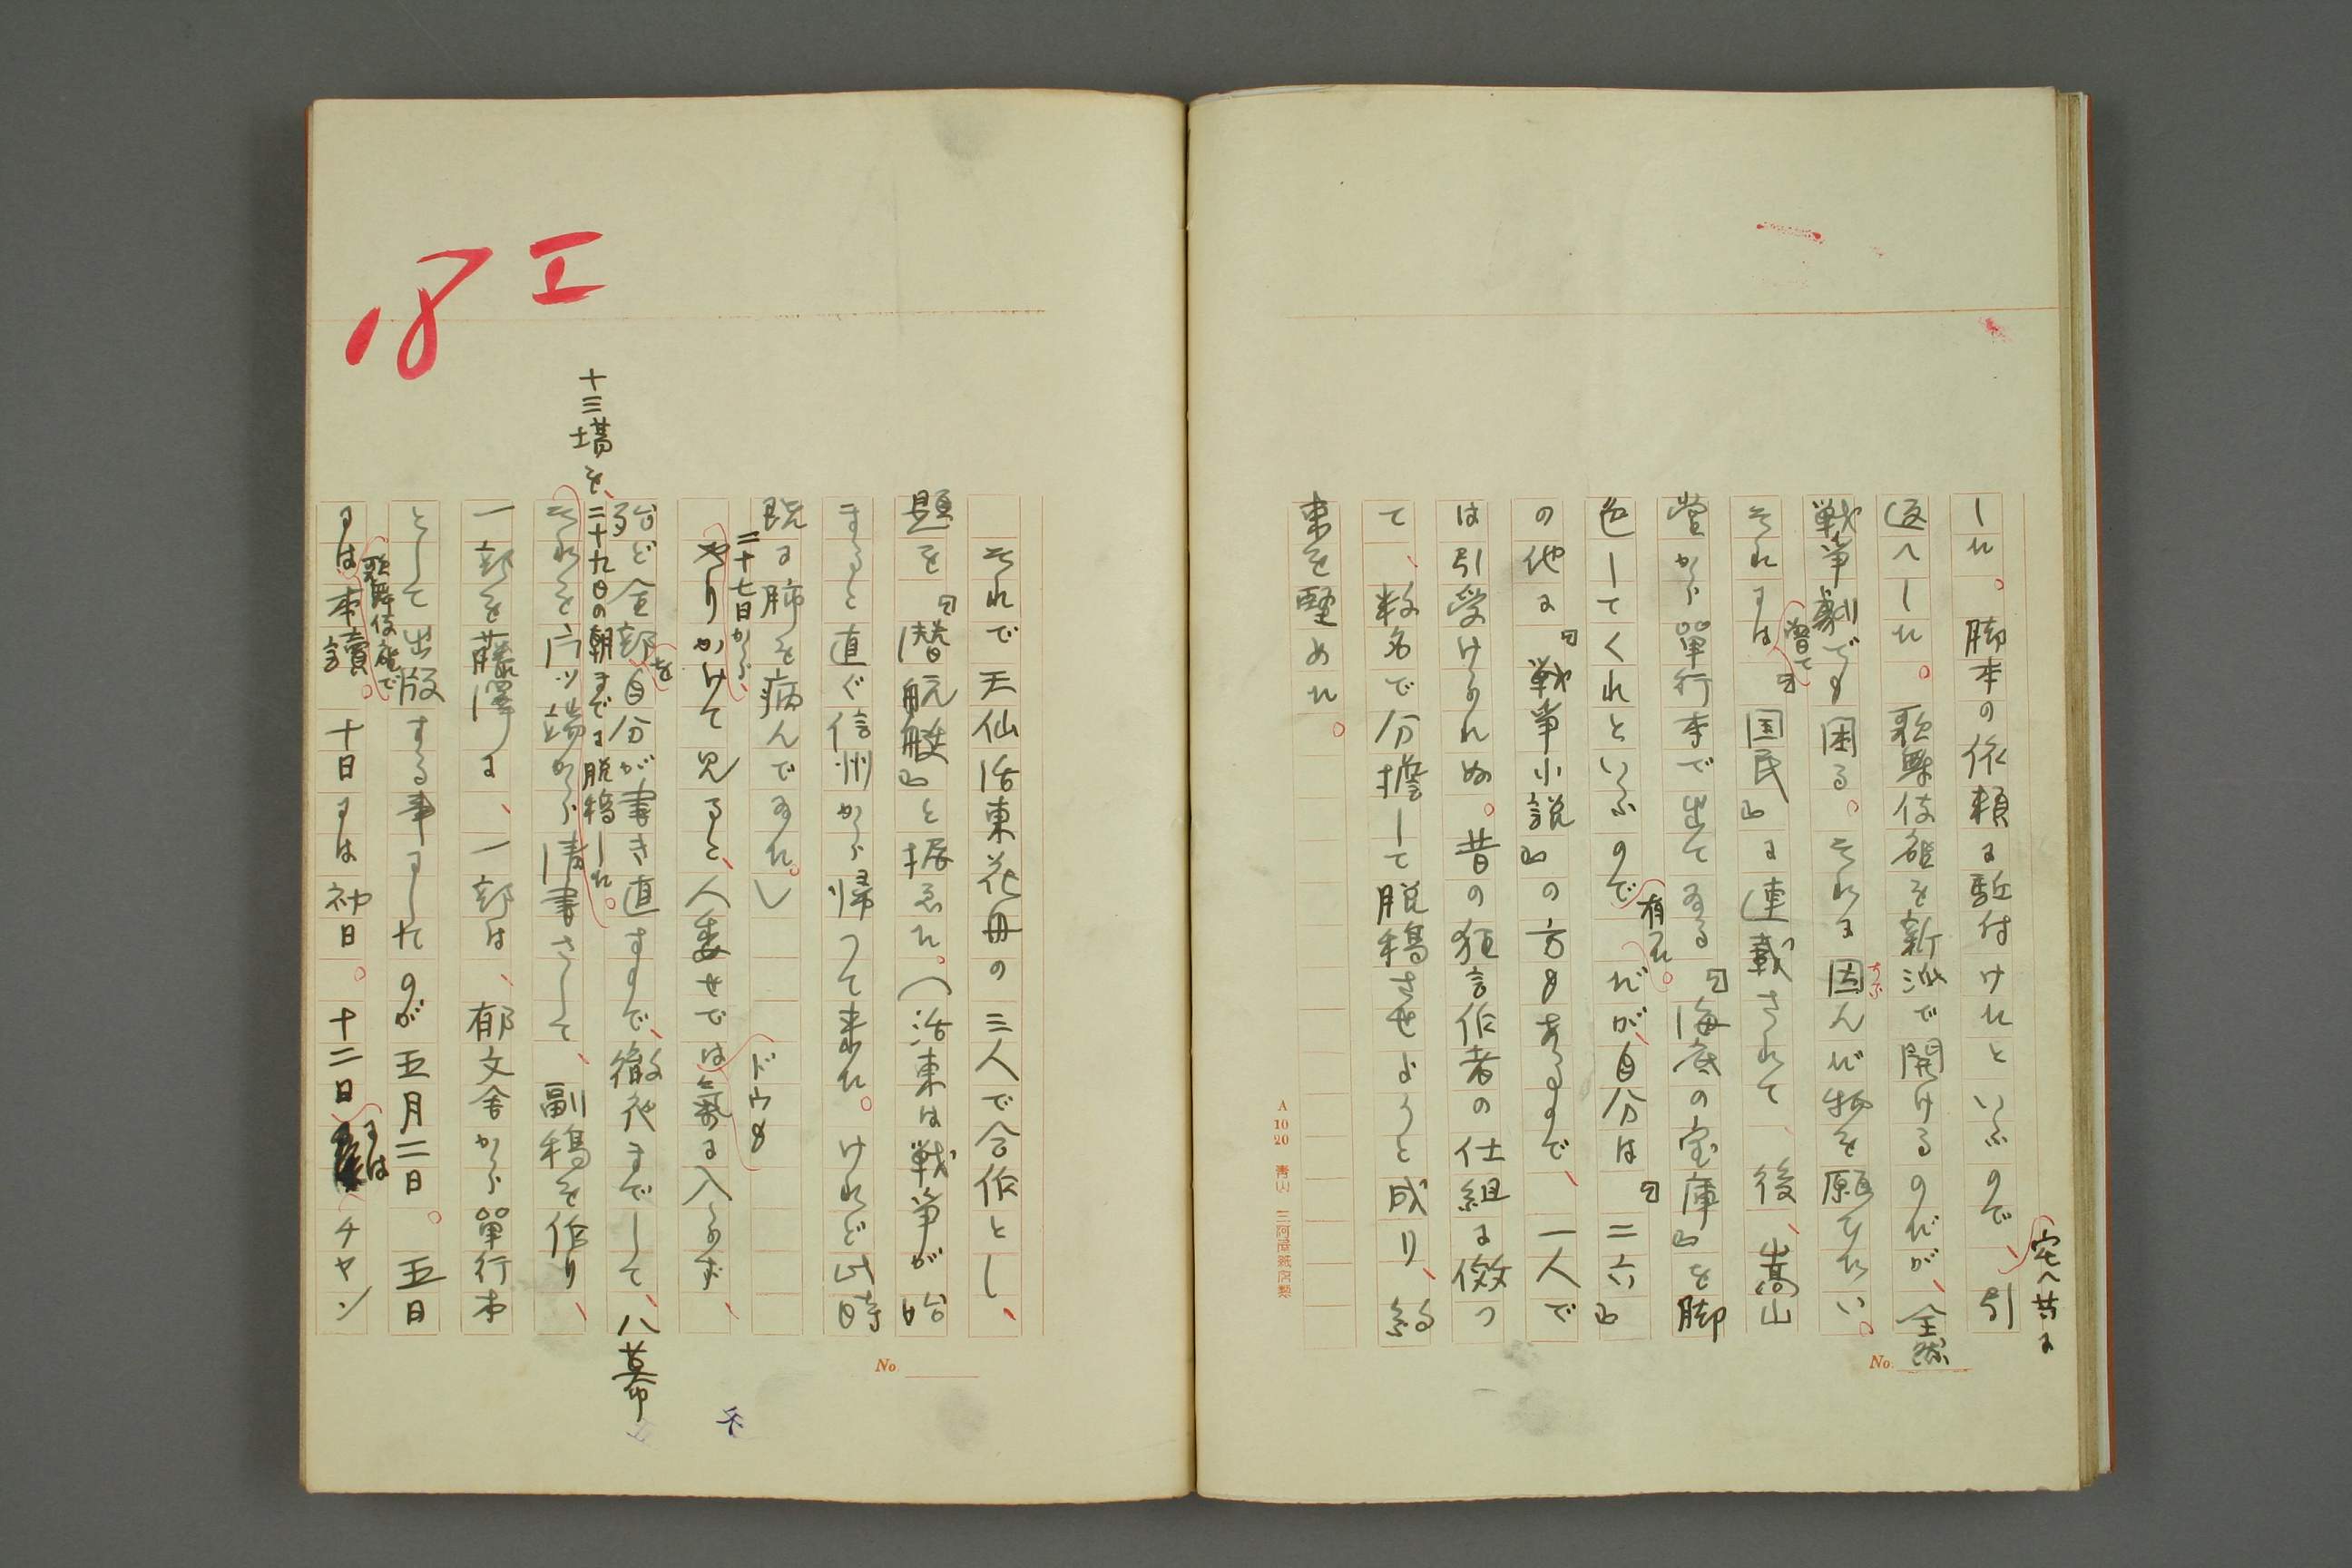 宅へ共に
した。脚本の依頼に駈付けたといふので、引
返へした。歌舞伎座を新派で開けるのだが、全然
戦争劇でも困る。それに因んだ物を願ひたい。
ちな
それには『国民』に連載されて、後、嵩山
曽て
堂から単行本で出てゐる『海底の宝庫』を脚
色してくれといふので有つた。だが、自分は『二六』
の他に『戦争小説』の方もあるので、一人で
は引受けられぬ。昔の狂言作者の仕組に倣つ
て、数名で分擔して脱稿させようと成り、約
束を堅めた。
A 10 20 青山 三河屋紙店製
No.
それで天仙活東花毋の三人で合作とし、
題を『潜航艇』と据ゑた。（活東は戦争が始
まると直ぐ信州から帰つて来た。けれど此時
既に肺を病んでゐた。）
二十七日から、
やりかけて見ると、人委せではドウも氣に入らず、
殆ど全部を自分が書き直すので、徹夜までして、八幕
十三場を、二十九日の朝までに脱稿した。
それを片ッ端から清書さして、副稿を作り、
一部を藤澤に、一部は、郁文舎から單行本
として出版する事にしたのが五月二日。五日
には歌舞伎座で本讀。十日には初日。十二日にはチヤン
18 工
No.